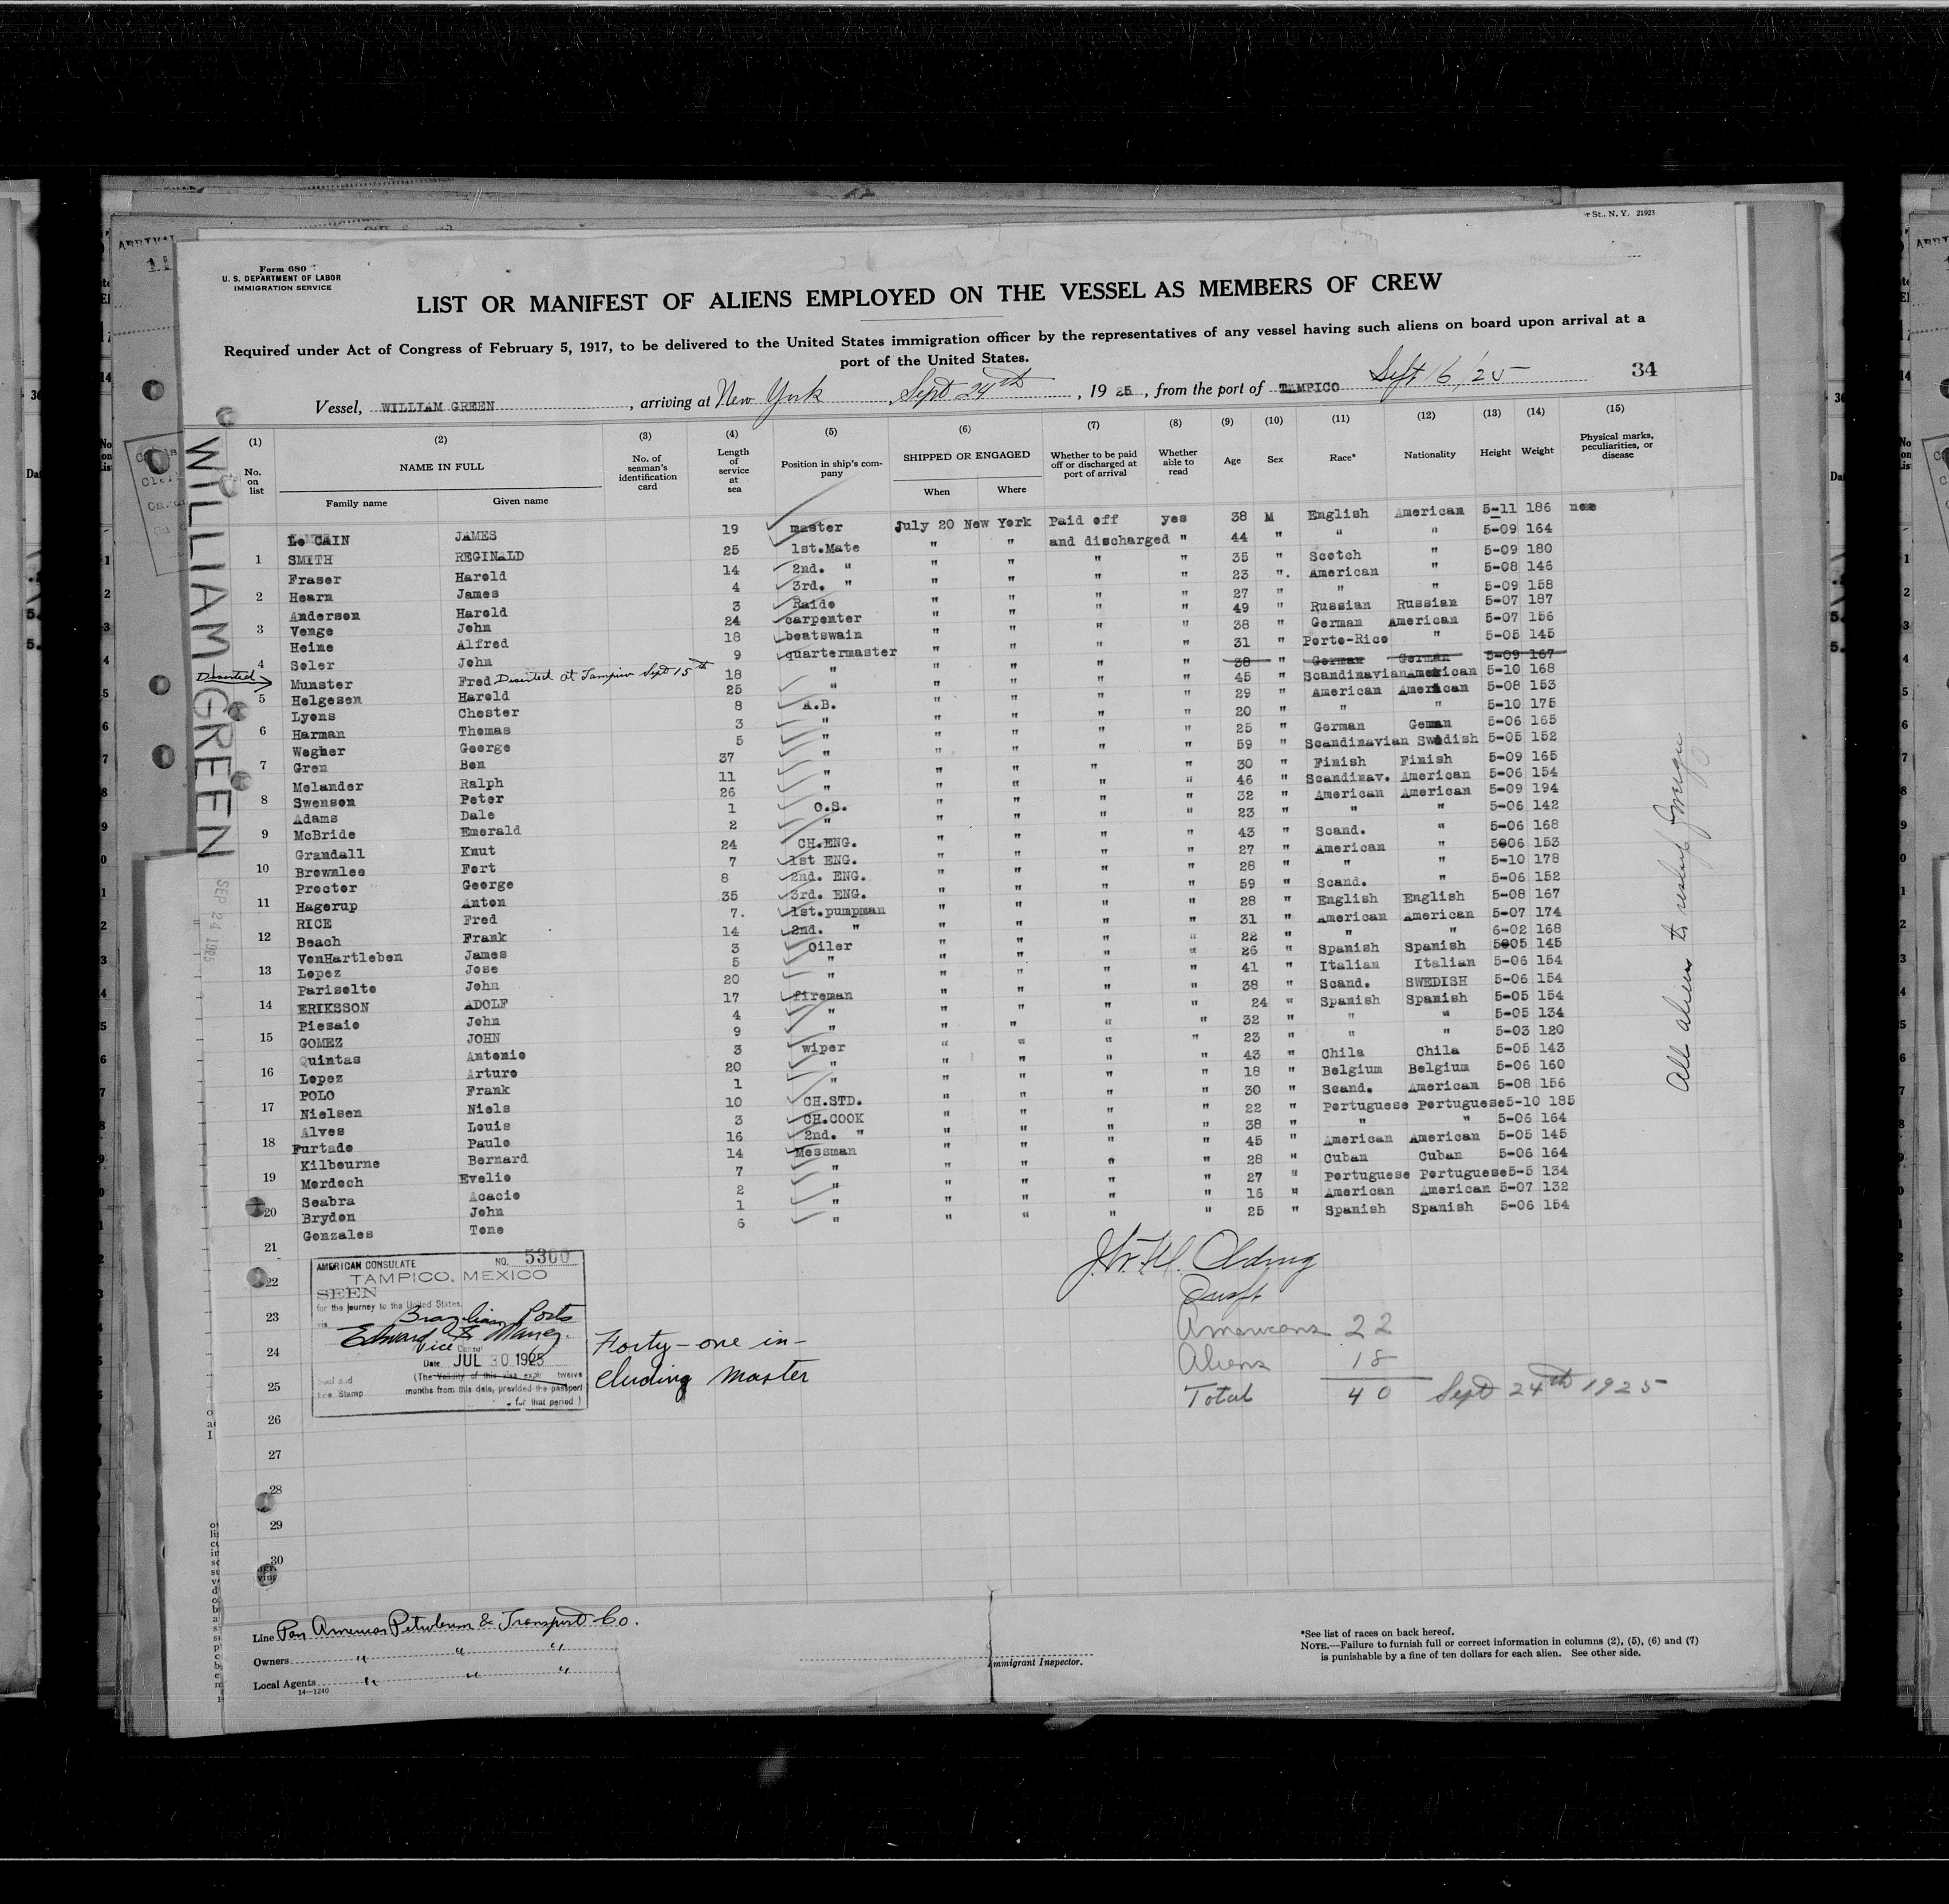 r St., N. Y. 21923
Form 680
U. S. DEPARTMENT OF LABOR
IMMIGRATION SERVICE
LIST OR MANIFEST OF ALIENS EMPLOYED ON THE VESSEL AS MEMBERS OF CREW
Required under Act of Congress of February 5, 1917, to be delivered to the United States immigration officer by the representatives of any vessel having such aliens on board upon arrival at a
port of the United States.
34
Vessel, WILLIAM GREEN, arriving at New York Sept 24th, 1925, from the port of TAMPICO Sept 16/25
(1) (2) (3) (4) (5) (6) (7) (8) (9) (10) (11) (12) (13) (14) (15)
No. on list NAME IN FULL No. of seaman's identification card Length of service at sea Position in ship's company SHIPPED OR ENGAGED Whether to be paid off or discharged at port of arrival Whether able to read Age Sex Race* Nationality Height Weight Physical marks, peculiarities, or disease
Family name Given name When Where
Le CAIN JAMES 19 master July 20 New York Paid off yes 38 M English American 5-11 186 none
1 SMITH REGINALD 25 1st.Mate " " and discharged " 44 " " " 5-09 164
Fraser Harold 14 2nd. " " " " " 35 " Scotch " 5-09 180
2 Hearn James 4 3rd. " " " " " 23 ". American " 5-08 146
Anderson Harold 3 Raido " " " " 27 " " " 5-09 158
3 Venge John 24 carpenter " " " " 49 " Russian Russian 5-07 187
Heine Alfred 18 boatswain " " " " 38 " German American 5-07 156
4 Soler John 9 quartermaster " " " " 31 " Porto-Rico " 5-05 145
Deserted Munster Fred Deserted at Tampico Sept 15th 18 " " " " " 38 " German German 5-09 167
5 Helgesen Harold 25 " " " " 45 " Scandinavian American 5-10 168
Lyons Chester 8 A.B. " " " " 29 " American American 5-08 153
6 Harman Thomas 3 " " " " " 20 " " " 5-10 175
Wegher George 5 " " " " " 25 " German Geman 5-06 165
7 Gren Ben 37 " " " " " 59 " Scandinavian Swedish 5-05 152
Melander Ralph 11 " " " " " 30 " Finish Finish 5-09 165
8 Swenson Peter 26 " " " " " 46 " Scandinav. American 5-06 154
Adams Dale 1 O.S. " " " " 32 " American American 5-09 194
9 McBride Emerald 2 " " " " " 23 " " " 5-06 142
Grandall Knut 24 CH.ENG. " " " " 43 " Scand. " 5-06 168
10 Brownlee Fort 7 1st ENG. " " " " 27 " American " 5006 153
Procter George 8 2nd. ENG. " " " " 28 " " " 5-10 178
11 Hagerup Anton 35 3rd. ENG. " " " " 59 " Scand. " 5-06 152
RICE Fred 7. 1st.pumpman " " " " 28 " English English 5-08 167
12 Beach Frank 14 2nd. " " " " " 31 " American American 5-07 174
VonHartleben James 3 Oiler " " " " 22 " " " 6-02 168
13 Lopez Jose 5 " " " " " 26 " Spanish Spanish 5005 145
Pariselte John 20 " " " " " 41 " Italian Italian 5-06 154
14 ERIKSSON ADOLF 17 fireman " " " " 38 " Scand. SWEDISH 5-06 154
Piesaio John 4 " " " " " 24 " Spanish Spanish 5-05 154
15 GOMEZ JOHN 9 " " " " " 32 " " " 5-05 134
Quintas Antonio 3 wiper " " " " 23 " " " 5-03 120
16 Lopez Arturo 20 " " " " " 43 " Chila Chila 5-05 143
POLO Frank 1 " " " " " 18 " Belgium Belgium 5-06 160
17 Nielsen Niels 10 CH.STD. " " " " 30 " Scand. American 5-08 156
Alves Louis 3 CH.COOK " " " " 22 " Portuguese Portuguese 5-10 185
18 Furtado Paulo 16 2nd. " " " " " 38 " " " 5-06 164
Kilbourne Bernard 14 Messman " " " " 45 " American American 5-05 145
19 Merdech Evelio 7 " " " " " 28 " Cuban Cuban 5-06 164
Seabra Acacio 2 " " " " " 27 " Portuguese Portuguese 5-5 134
20 Bryden John 1 " " " " " 16 " American American 5-07 132
Gonzales Tone 6 " " " " " 25 " Spanish Spanish 5-06 154
21
22
23
24
25
26
27
28
29
30
WILLIAM GREEN
SEP 24 1925
All aliens to reship foreign
AMERICAN CONSULATE NO. 5300
TAMPICO, MEXICO
SEEN
for the journey to the United States,
via Brazilian Ports
Vice Consul
Date JUL 30 1925
(The Validity of this visa expires twelve
months from this date, provided the passport
for that period)
Forty-one in-
cluding Master
Americans 22
Aliens 18
Total 40 Sept 24th 1925
Line Pan American Petroleum & Transport Co.
Owners " " "
Local Agents " " "
14—1240
Immigrant Inspector.
*See list of races on back hereof.
NOTE.—Failure to furnish full or correct information in columns (2), (5), (6) and (7)
is punishable by a fine of ten dollars for each alien. See other side.